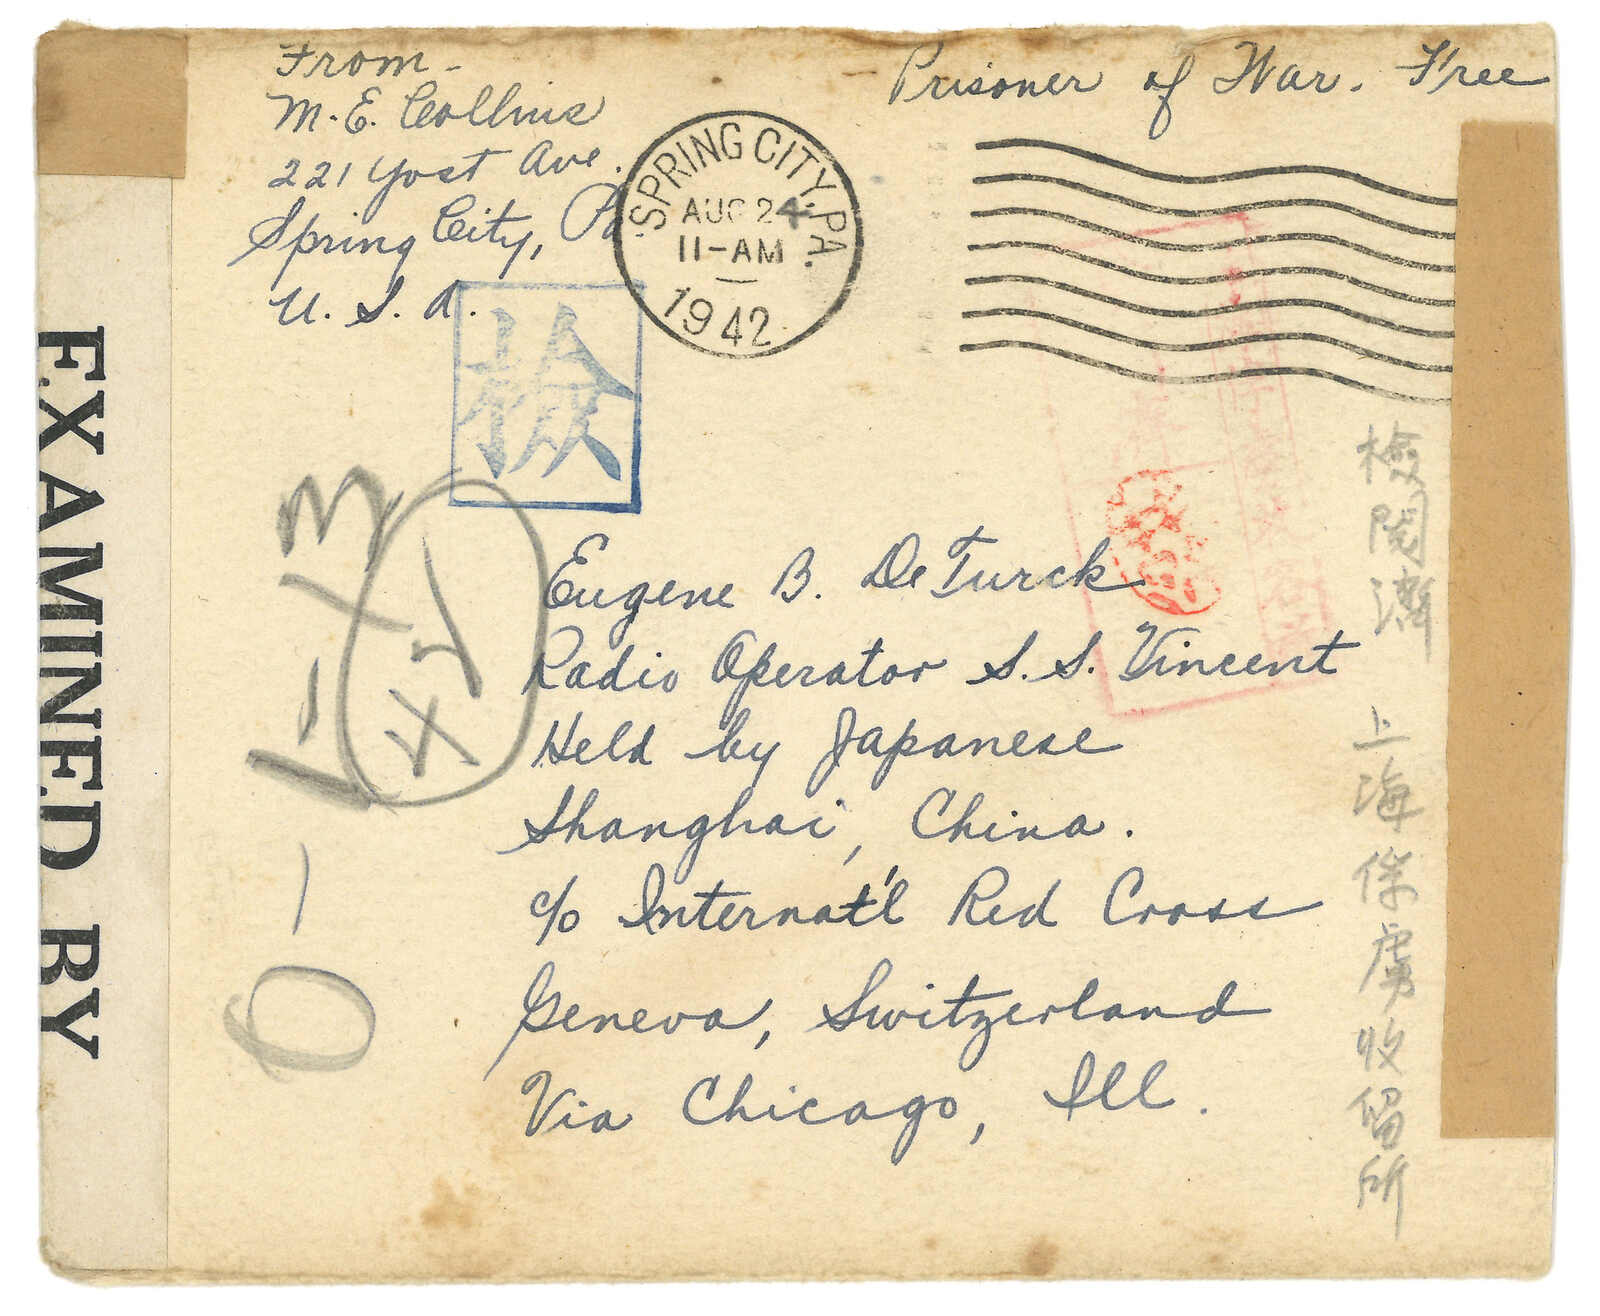 From -
M. E. Collins
221 Yost Ave.
Spring City, Pa
U. S. A.
Prisoner of War. Free
SPRING CITY, PA.
AUG 24
11-AM
1942
検
Eugene B. DeTurck
Radio Operator S. S. Vincent
Held by Japanese
Shanghai, China.
c/o Internat'l Red Cross
Geneva, Switzerland
Via Chicago, Ill.
EXAMINED BY
檢閲濟
上海俘虜收留所